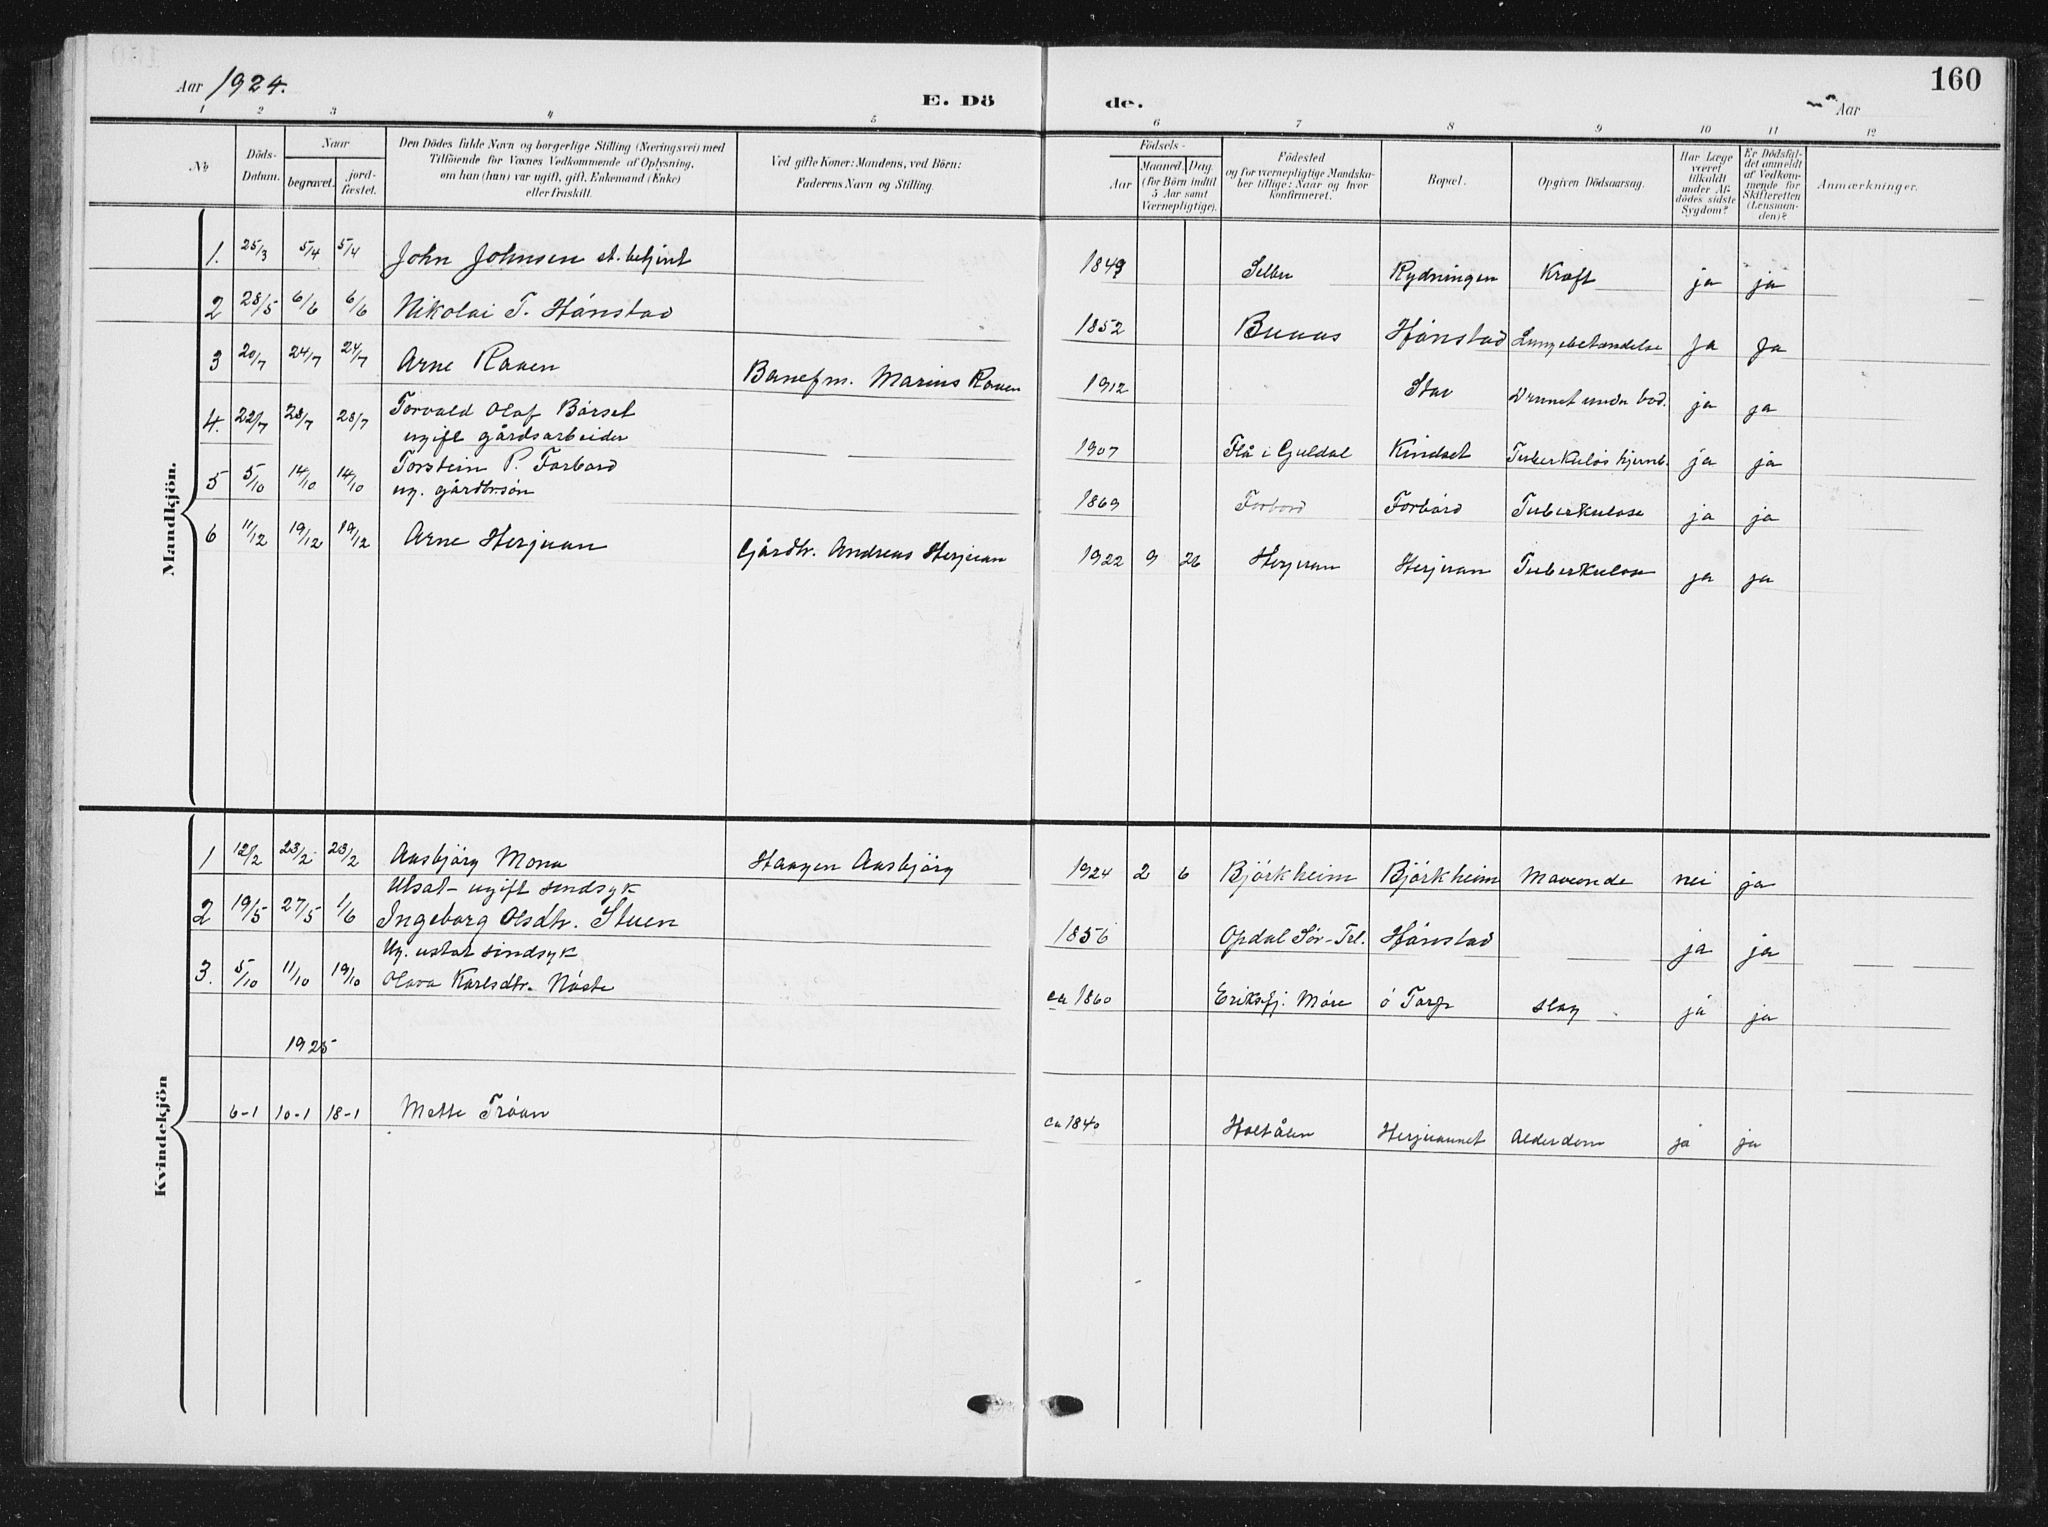 160
Aar 1924.
E. Dö de.
Aar
1 2 3 4 5 6 7 8 9 10 11 12
No
Döds-Datum.
Naar
begravet.
jord-fæstet.
Den Dödes fulde Navn og borgerlige Stilling (Næringsvei) med
Tilföiende for Voxnes Vedkommende af Oplysning,
om han (hun) var ugift, gift, Enkemand (Enke)
eller fraskilt.
Ved gifte Koner: Mandens, ved Börn:
Faderens Navn og Stilling.
Födsels-
Aar
Maaned. Dag.
(for Börn indtil
5 Aar samt
Værnepligtige).
Födested
og for værnepligtige Mandska-
ber tillige: Naar og hvor
konfirmeret.
Bopæl.
Opgiven Dödsaarsag.
Har Læge
været
tilkaldt
under Af-
dödes sidste
Sygdom?
Er Dödsfal-
det anmeldt
af Vedkom-
mende for
Skifteretten
(Lensman-
den)?
Anmærkninger.
Mandkjön.
1. 25/3 5/4 5/4 John Johnsen st. betjent 1849 Selbu Rydningen Kræft ja ja
2 28/5 6/6 6/6 Nikolai T. Hånstad 1852 Buaas Hånstad Lungebetændelse ja ja
3 20/7 24/7 24/7 Arne Raaen Banefm. Marius Raaen 1912 Stav Drunet under bad. ja ja
4. 22/7 28/7 28/7 Torvald Olaf Bårset
ugift gårdsarbeider 1907 Flå i Guldal Kindset Tuberkuløs hjernb. ja ja
5 5/10 14/10 14/10 Torstein P. Forbord
ug. gårdbr.søn 1869 Forbord Forbord Tuberkulose ja ja
6 11/12 19/12 19/12 Arne Herjuan Gårdbr. Andreas Herjuan 1922 9 26 Herjuan Herjuan Tuberkulose ja ja
Kvindekjön
1 12/2 23/2 23/2 Aasbjørg Mona Haagen Aasbjørg 1924 2 6 Bjørkheim Bjørkheim Maveonde nei ja
Utsat- ugift sindsyk
2 19/5 27/5 1/6 Ingeborg Olsdtr. Stuen 1856 Opdal Sør-Trl. Hånstad ja ja
Ug. utsat sindsyk
3. 5/10 11/10 19/10 Olava Karlsdtr. Nøste ca 1860 Eriksfj. Møre ø Torp slag ja ja
1925
6-1 10-1 18-1 Mette Trøan ca 1840 Holtålen Herjuaunet Alderdom ja ja